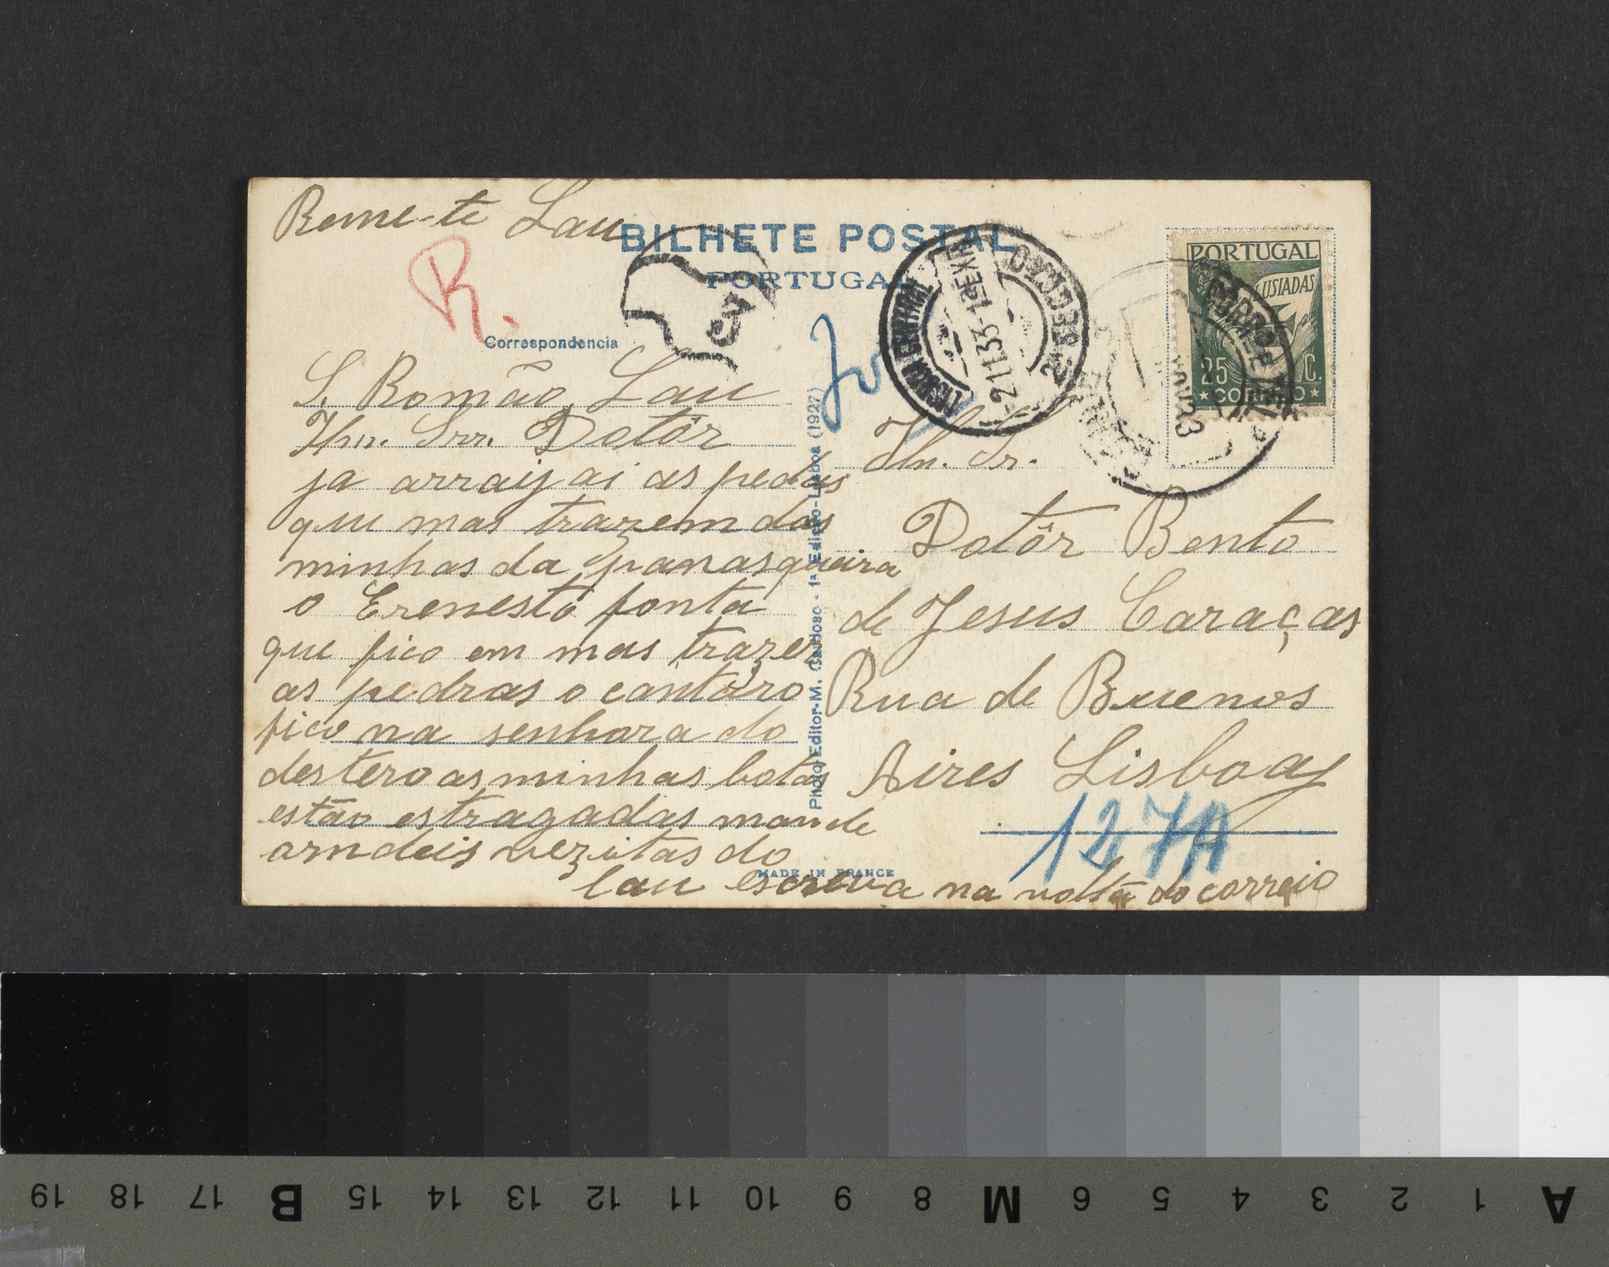 Reme-te Lau
BILHETE POSTAL
PORTUGAL
R.
3
Correspondencia
S. Romão Lau
Ilm. Snr. Dotôr
ja arraijai as pedas
que mas trazem das
minhas da panasqueira
o Erenesto fonta
que fico em mas trazer
as pedras o cantoro
fico na senhora do
destero as minhas botas
estão estragadas mande
arndeis vezitas do
lau escreva na volta do correio
Photo Editor-M. Cardoso - 1ª Edição-Lisboa (1927)
MADE IN FRANCE
LISBOA CENTRAL
2ª SECCÃO
-2 11 33-1
PORTUGAL
LUSIADAS
25 C.
CORREIO
Ilm. Sr.
Dotôr Bento
de Jesus Caraças
Rua de Buenos
Aires Lisboa
127A
19 18 17 B 15 14 13 12 11 10 9 8 M 6 5 4 3 2 1 A